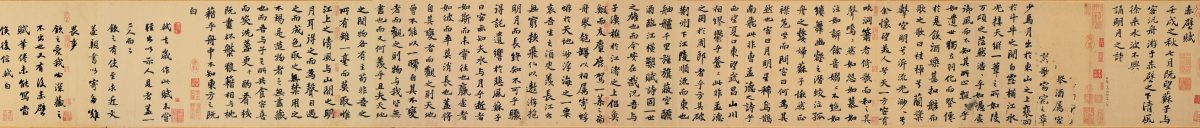 赤壁賦
壬戌之秋七月既望蘇子與
客泛舟游於赤壁之下清風
徐來水波不興舉酒屬客
誦明月之詩歌窈窕之章
少焉月出於東山之上裴回
於斗牛之間白露橫江水
光接天縱一葦之所如陵
萬頃之茫然浩浩乎如馮虛
御風而不知其所止飄飄乎
如遺世獨立羽化而登僊
於是飲酒樂甚扣舷而
歌之歌曰桂棹兮蘭槳
擊空明兮泝流光渺渺兮
余懷望美人兮天一方客有
吹洞簫者倚歌而和之其
聲嗚嗚然如怨如慕如
泣如訴餘音嫋嫋不絕如
縷舞幽壑之潛蛟泣孤
舟之嫠婦蘇子愀然正
襟危坐而問客曰何為其
然也客曰月明星稀烏鵲
南飛此非曹孟德之詩乎
西望夏口東望武昌山川
相繆鬱乎蒼蒼此非孟德
之困於周郎者乎方其破
荊州下江陵順流而東也
舳艫千里旌旗蔽空釃
酒臨江橫槊賦詩固一世
之雄也而今安在哉況吾與
子漁樵於江渚之上侶魚
鰕而友麋鹿駕一葉之
扁舟舉匏樽以相屬寄蜉
蝣於天地渺浮海之一粟
哀吾生之須臾羨長江之
無窮挾飛仙以遨遊抱
明月而長終知不可乎驟
得託遺響於悲風蘇子
曰客亦知夫水與月乎逝者
如斯而未嘗往也盈虛者
如代而卒莫消長也蓋將
自其變者而觀之則天地
曾不能以一瞬自其不變
者而觀之則物與我皆無
盡也而又何羨乎且夫天地
之間物各有主苟非吾之
所有雖一毫而莫取惟
江上之清風與山間之明
月耳得之而為聲目遇
之而成色取之無禁用之
不竭是造物者之無盡藏
也而吾與子之所共食客喜
而笑洗盞更酌肴核既
盡杯盤狼藉相與枕
藉乎舟中不知東方之既
白
軾去歲作此賦未嘗
輕出以示人見者蓋一
二人而已
欽之有使至求近文
遂親書以寄多難
畏事
欽之愛我必深藏之
不出也又有後赤壁
賦筆倦未能寫當
俟後信軾白